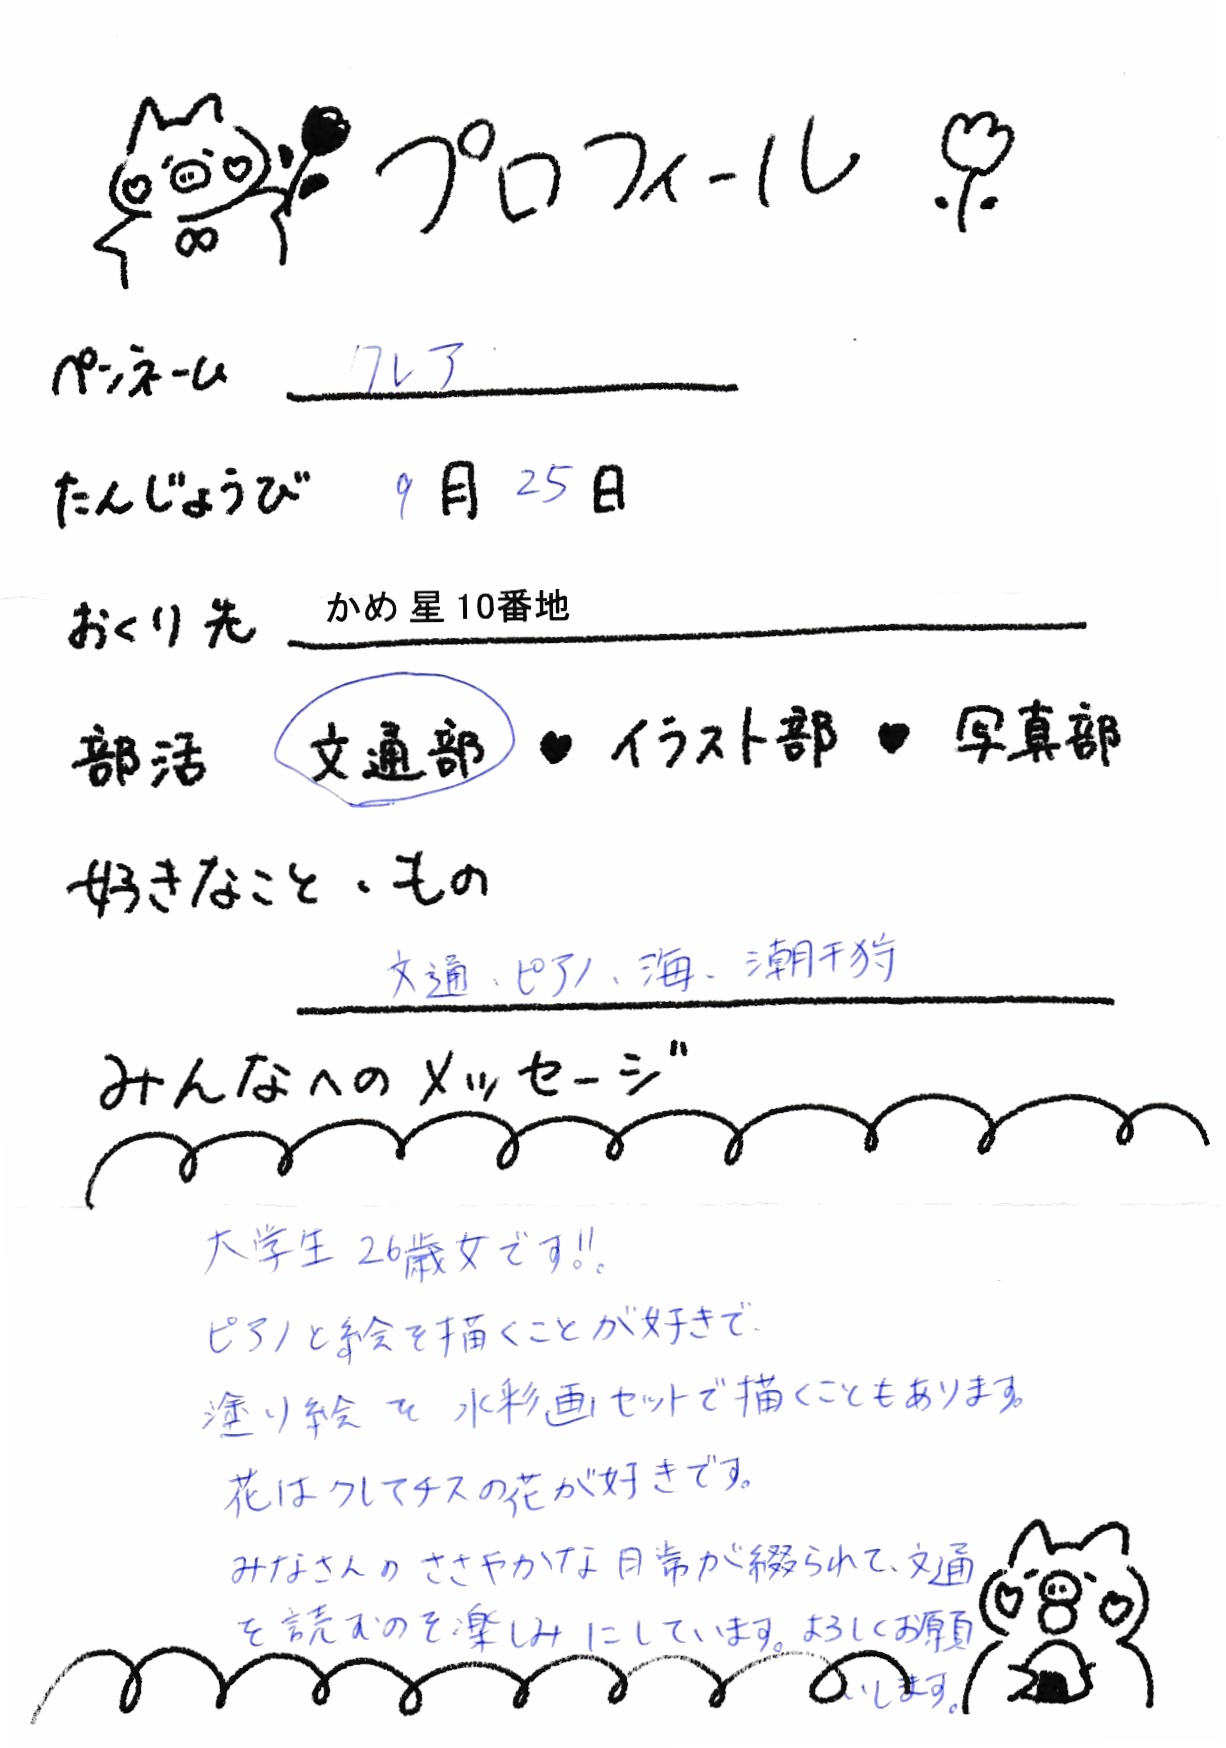 プロフィール
ペンネーム クレア
たんじょうび 9月25日
おくり先 かめ星10番地
部活 文通部 ♥ イラスト部 ♥ 写真部
好きなこと、もの
文通、ピアノ、海、潮干狩
みんなへのメッセージ
大学生 26歳女です!!。
ピアノと絵を描くことが好きで、
塗り絵を水彩画セットで描くこともあります。
花はクレマチスの花が好きです。
みなさんのささやかな日常が綴られて、文通
を読むのを楽しみにしています。よろしくお願
いします。